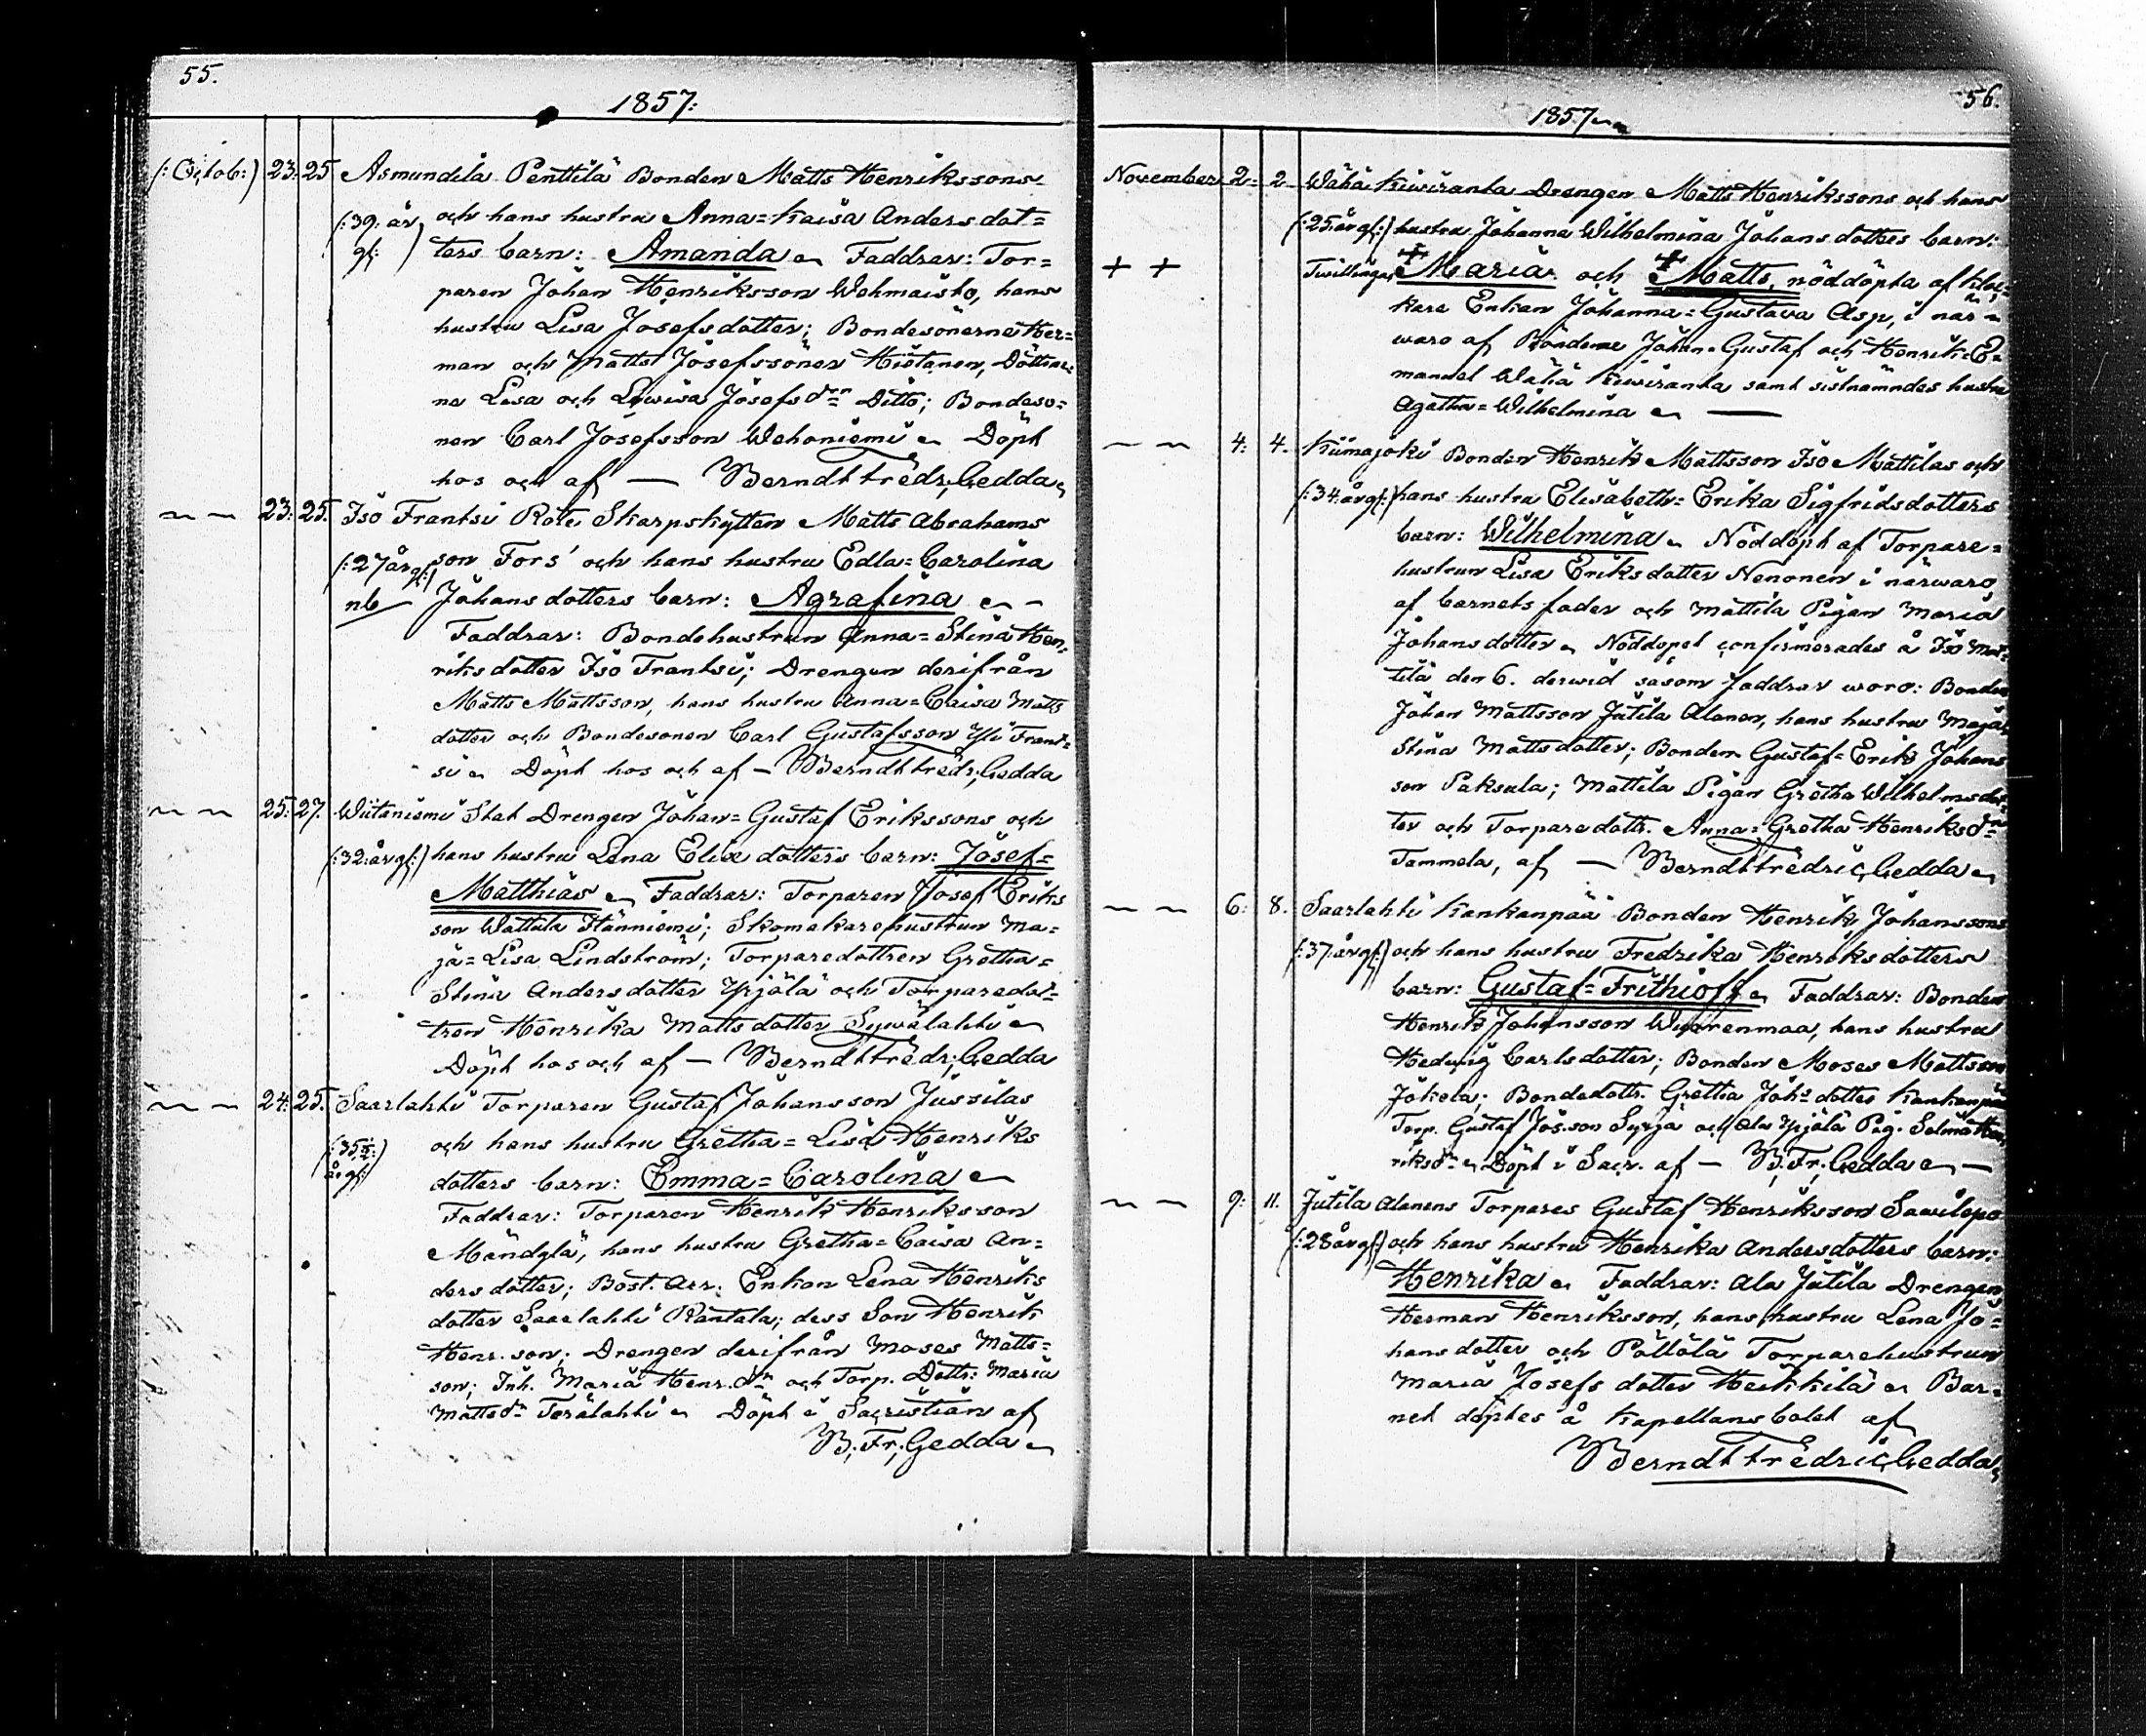 55.
1857:
(:Octob:) 23: 25 Asmundila Penttilä Bonden Matts Henrikssons
(:39. år gl:) och hans hustru Anna=Kaisa Andersdot=
ters barn: Amanda Faddrar: Tor=
paren Johan Henriksson Wehmaisto, hans
hustru Lisa Josefsdotter; Bondesönerne Her=
man och Matts Josefssöner Hiotanen, Döttrar=
na Lisa och Lowisa Josefsdr Ditto; Bondeso=
nen Carl Josefsson Wehoniemi Döpt
hos och af — Berndt Fredr. Gedda
23: 25. Iso Frantsi Rote Skarpskytten Matts Abrahams
(:27 år gl:) son Fors' och hans hustru Edla=Carolina
nb Johansdotters barn: Agrafina
Faddrar: Bondehustrun Anna=Stina Hen=
riksdotter Iso Frantsi; Drengen derifrån
Matts Mattsson, hans hustru Anna=Caisa Matts
dotter och Bondesonen Carl Gustafsson Yli Frant=
si Döpt hos och af — Berndt Fredr. Gedda
25: 27. Wiitaniemi Stat Drengen Johan=Gustaf Erikssons och
(:32: år gl:) hans hustru Lena Eliæ dotters barn: Josef=
Matthias Faddrar: Torparen Josef Eriks
son Wattula Hänniemi; Skomakarehustrun Ma=
ja=Lisa Lindström; Torparedottren Gretha=
Stina Andersdotter Yrjölä och Torparedot=
tren Henrika Mattsdotter Sywälahti
Döpt hos och af — Berndt Fredr. Gedda
24: 25. Saarlahti Torparen Gustaf Johansson Jussilas
(:35 ½ år gl:) och hans hustru Gretha=Lisa Henriks
dotters barn: Emma=Carolina
Faddrar: Torparen Henrik Henriksson
Mändylä, hans hustru Gretha=Caisa An=
dersdotter; Bost. Arr. Enkan Lena Henriks
dotter Saarlahti Rantala; dess Son Henrik
Henr. son; Drengen derifrån Moses Matts=
son; Inh. Maria Henr. dr och Torp. Dottr: Maria
Mattsdr Terälahti Döpt i Sacristian af
B. Fr. Gedda
56.
1857
November 2: 2 Wähä Kiwiranta Drengen Matts Henrikssons och hans
(:25: år gl:) hustru Johanna Wilhelmina Johansdotters barn:
+ + Twillingar Maria och Matts, nöddöpta af Kloc=
kare Enkan Johanna=Gustava Asp, i när=
waro af Bönderne Johan=Gustaf och Henrik=E=
manuel Wähä Kiwiranta samt sistnämndes hustru
Agatha=Wilhelmina
4: 4. Kiimajoki Bonden Henrik Mattsson Iso Mattilas och
(:34: år gl:) hans hustru Elisabeth=Erika Sigfridsdotters
barn: Wilhelmina Nöddöpt af Torpare=
hustrun Lisa Eriksdotter Nenonen i närwaro
af barnets fader och Mattila Pigan Maria
Johansdotter Nöddopet confirmerades å Iso Mat=
tila den 6. derwid såsom faddrar woro: Bonden
Johan Mattsson Jutila Alanen, hans hustru Maja
Stina Mattsdotter; Bonden Gustaf=Erik Johans
son Paksula; Mattila Pigan Gretha Wilhelmsdot=
ter och Torparedottr. Anna=Gretha Henriksdr
Tammela, af — Berndt Fredric Gedda
6: 8. Saarlahti Kankanpää Bonden Henrik Johanssons
(:37: år gl:) och hans hustru Fredrika Henriksdotters
barn: Gustaf=Frithioff Faddrar: Bonden
Henrik Johansson Wuorenmaa, hans hustru
Hedwig Carlsdotter; Bonden Moses Mattsson
Jokela; Bondedottr. Gretha Joh: dotter Kankanpää
Torp. Gustaf Jos.son Syrjä och Ala Yrjölä Pig. Selma Hen
riksdr Döpt i Sacr. af — B. Fr. Gedda
9: 11. Jutila Alanens Torpares Gustaf Henriksson Sawilepo
(:28 år gl:) och hans hustru Henrika Andersdotters barn:
Henrika Faddrar: Ala Jutila Drengen
Herman Henriksson, hans hustru Lena Jo=
hansdotter och Pöllölä Torparehustrun
Maria Josefsdotter Heikkilä Bar=
net döptes å Kapellansbolet af
Berndt Fredric Gedda